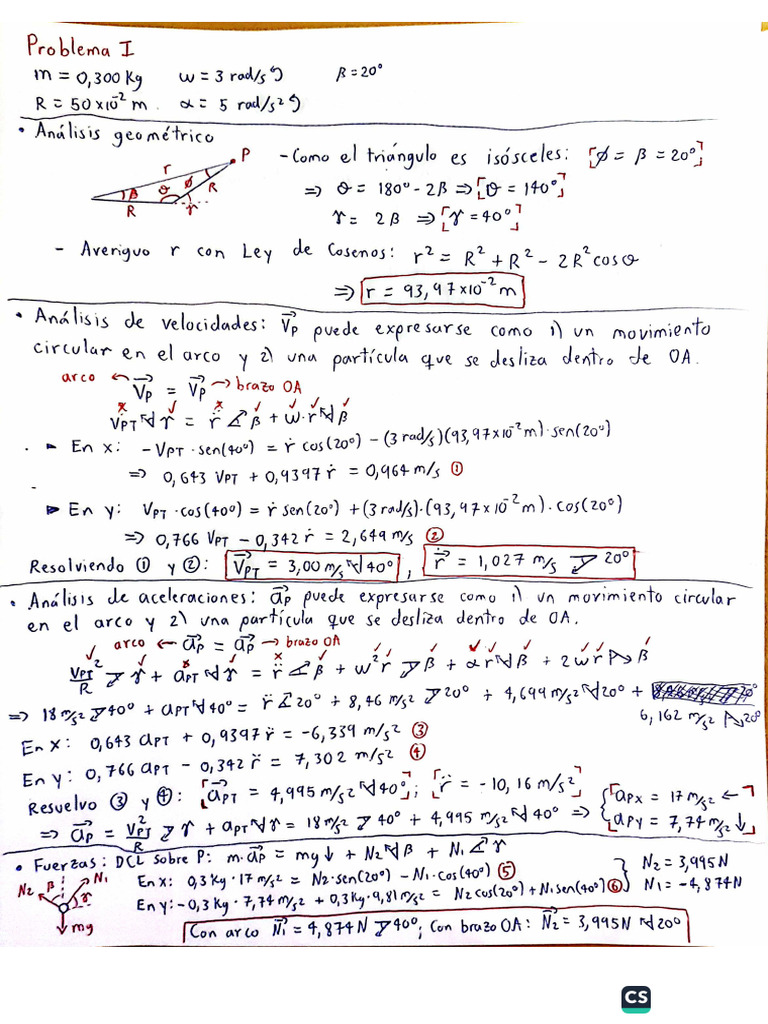 Problema I
m = 0,300 Kg   ω = 3 rad/s ↺   β = 20°
R = 50×10⁻² m.   α = 5 rad/s² ↺
• Análisis geométrico
r P
β θ ϕ R
R γ
- Como el triángulo es isósceles: [ϕ = β = 20°]
⇒ θ = 180° - 2β ⇒ [θ = 140°]
γ = 2β ⇒ [γ = 40°]
- Averiguo r con Ley de Cosenos: r² = R² + R² - 2R² cos θ
⇒ r = 93,97×10⁻² m
• Análisis de velocidades: V⃗p puede expresarse como 1) un movimiento
circular en el arco y 2) una partícula que se desliza dentro de OA.
arco ← V⃗p = V⃗p → brazo OA
VPT ↖ γ = ṙ ∠ β + ω·r ↖ β
► En x: -VPT · sen(40°) = ṙ cos(20°) - (3 rad/s)(93,97×10⁻² m)·sen(20°)
⇒ 0,643 VPT + 0,9397 ṙ = 0,964 m/s ①
► En y: VPT · cos(40°) = ṙ sen(20°) + (3 rad/s)·(93,97×10⁻² m)·cos(20°)
⇒ 0,766 VPT - 0,342 ṙ = 2,649 m/s ②
Resolviendo ① y ②: V⃗PT = 3,00 m/s ↖ 40° , ṙ⃗ = 1,027 m/s ↙ 20°
• Análisis de aceleraciones: a⃗p puede expresarse como 1) un movimiento circular
en el arco y 2) una partícula que se desliza dentro de OA.
arco ← a⃗p = a⃗p → brazo OA
VPT²/R ↙ γ + aPT ↖ γ = r̈ ∠ β + ω² r ↙ β + α r ↖ β + 2ωṙ ↘ β
⇒ 18 m/s² ↙ 40° + aPT ↖ 40° = r̈ ∠ 20° + 8,46 m/s² ↙ 20° + 4,699 m/s² ↖ 20° +
6,162 m/s² ↘ 20°
En x: 0,643 aPT + 0,9397 r̈ = -6,339 m/s² ③
En y: 0,766 aPT - 0,342 r̈ = 7,302 m/s² ④
Resuelvo ③ y ④: [a⃗PT = 4,995 m/s² ↖ 40°]; [r̈ = -10,16 m/s²]
⇒ a⃗p = VPT²/R ↙ γ + aPT ↖ γ = 18 m/s² ↙ 40° + 4,995 m/s² ↖ 40° ⇒ { [aPx = 17 m/s² ←]
[aPy = 7,74 m/s² ↓]
• Fuerzas: DCL sobre P: m·a⃗p = mg ↓ + N2 ↖ β + N1 ∠ γ
N2 β N1 γ
mg
En x: 0,3 Kg · 17 m/s² = N2·sen(20°) - N1·cos(40°) ⑤
En y: -0,3 Kg · 7,74 m/s² + 0,3 Kg · 9,81 m/s² = N2 cos(20°) + N1 sen(40°) ⑥
N2 = 3,995 N
N1 = -4,874 N
Con arco N⃗1 = 4,874 N ↙ 40°; Con brazo OA: N⃗2 = 3,995 N ↖ 20°
CS